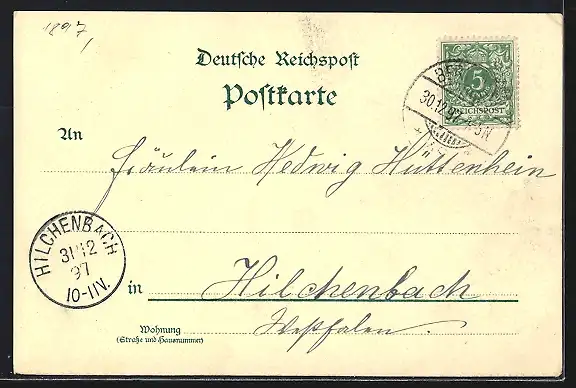 1897
Deutsche Reichspost
Postkarte
5
REICHSPOST
30.12.97
An
Fräulein Hedwig Hüttenhein
HILCHENBACH
31 12
97
10-11V.
in Hilchenbach
Wohnung
(Straße und Hausnummer)
Westfalen.